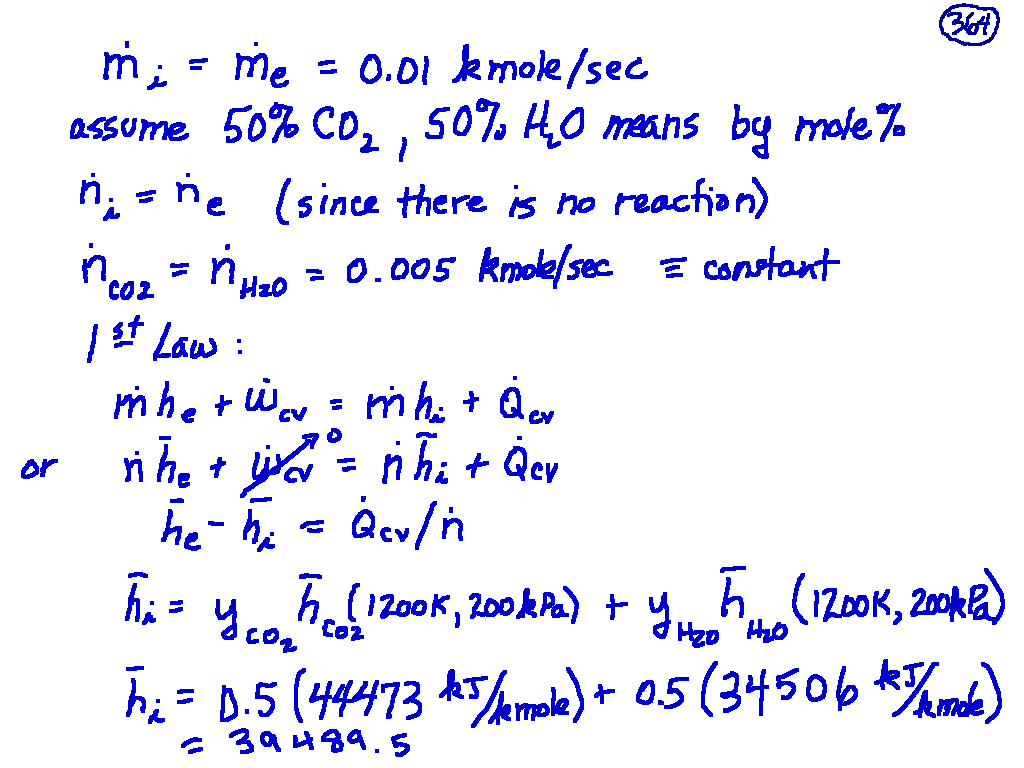 364
ṁᵢ = ṁₑ = 0.01 kmole/sec
assume 50% CO₂, 50% H₂O means by mole%
ṅᵢ = ṅₑ (since there is no reaction)
ṅ_CO2 = ṅ_H2O = 0.005 kmole/sec ≡ constant
1st Law :
ṁ hₑ + Ẇcv = ṁ hᵢ + Q̇cv
or ṅ h̄ₑ + Ẇcv→0 = ṅ h̄ᵢ + Q̇cv
h̄ₑ - h̄ᵢ = Q̇cv/ṅ
h̄ᵢ = y_CO2 h̄_CO2 (1200K, 200kPa) + y_H2O h̄_H2O (1200K, 200kPa)
h̄ᵢ = 0.5 (44473 kJ/kmole) + 0.5 (34506 kJ/kmole)
= 39489.5